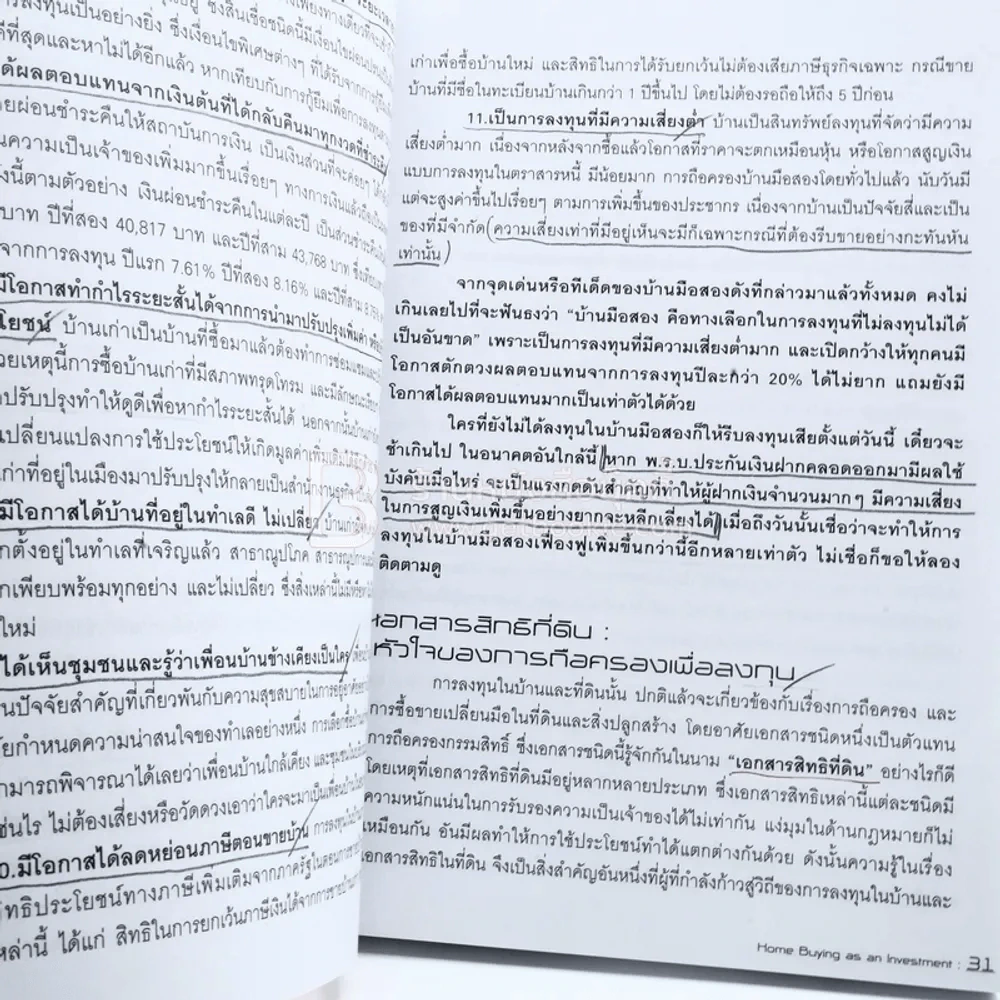 ระยะเวลา
ซึ่งสินเชื่อชนิดนี้มีเงื่อนไขผ่อนปรน
ลงทุนเป็นอย่างยิ่ง ซึ่งเงื่อนไขพิเศษต่างๆ ที่ได้รับจากการกู้ยืม
ดีที่สุดและหาไม่ได้อีกแล้ว หากเทียบกับการกู้ยืมเพื่อการลงทุน
ด้ผลตอบแทนจากเงินต้นที่ได้กลับคืนมาทุกงวดที่ชำระ
ยผ่อนชำระคืนให้สถาบันการเงิน เป็นเงินส่วนที่จะค่อยๆ
นความเป็นเจ้าของเพิ่มมากขึ้นเรื่อยๆ ทางการเงินแล้วถือเป็น
งนี้ตามตัวอย่าง เงินผ่อนชำระคืนในแต่ละปี เป็นส่วนชำระคืน
บาท ปีที่สอง 40,817 บาท และปีที่สาม 43,768 บาท ซึ่ง
จากการลงทุน ปีแรก 7.61% ปีที่สอง 8.16% และปีที่สาม
มีโอกาสทำกำไรระยะสั้นได้จากการนำมาปรับปรุงเพิ่มค่า
โยชน์ บ้านเก่าเป็นบ้านที่ซื้อมาแล้วต้องทำการซ่อมแซม
วยเหตุนี้การซื้อบ้านเก่าที่มีสภาพทรุดโทรม และมีลักษณะ
ปรับปรุงทำให้ดูดีเพื่อหากำไรระยะสั้นได้ นอกจากนั้น
เปลี่ยนแปลงการใช้ประโยชน์ให้เกิดมูลค่าเพิ่มเติมได้
ก่าที่อยู่ในเมืองมาปรับปรุงให้กลายเป็นสำนักงานธุรกิจ
มีโอกาสได้บ้านที่อยู่ในทำเลดี ไม่เปลี่ยว บ้านเก่า
กตั้งอยู่ในทำเลที่เจริญแล้ว สาธารณูปโภค สาธารณูปการ
กเพียบพร้อมทุกอย่าง และไม่เปลี่ยว ซึ่งสิ่งเหล่านี้ไม่มี
ใหม่
ได้เห็นชุมชนและรู้ว่าเพื่อนบ้านข้างเคียงเป็นใคร
นปัจจัยสำคัญที่เกี่ยวพันกับความสุขสบายในการอยู่อาศัย
ัยกำหนดความน่าสนใจของทำเลอย่างหนึ่ง การเลือกซื้อบ้าน
ามารถพิจารณาได้เลยว่าเพื่อนบ้านใกล้เคียง และชุมชน
ช่นไร ไม่ต้องเสี่ยงหรือวัดดวงเอาว่าใครจะมาเป็นเพื่อนบ้าน
0.มีโอกาสได้ลดหย่อนภาษีตอนขายบ้าน การลงทุนใน
ิทธิประโยชน์ทางภาษีเพิ่มเติมจากภาครัฐในตอนการขาย
หล่านี้ ได้แก่ สิทธิในการยกเว้นภาษีเงินได้จากการขายบ้าน
เก่าเพื่อซื้อบ้านใหม่ และสิทธิในการได้รับยกเว้นไม่ต้องเสียภาษีธุรกิจเฉพาะ กรณีขาย
บ้านที่มีชื่อในทะเบียนบ้านเกินกว่า 1 ปีขึ้นไป โดยไม่ต้องรอถือให้ถึง 5 ปีก่อน
11.เป็นการลงทุนที่มีความเสี่ยงต่ำ บ้านเป็นสินทรัพย์ลงทุนที่จัดว่ามีความ
เสี่ยงต่ำมาก เนื่องจากหลังจากซื้อแล้วโอกาสที่ราคาจะตกเหมือนหุ้น หรือโอกาสสูญเงิน
แบบการลงทุนในตราสารหนี้ มีน้อยมาก การถือครองบ้านมือสองโดยทั่วไปแล้ว นับวันมี
แต่จะสูงค่าขึ้นไปเรื่อยๆ ตามการเพิ่มขึ้นของประชากร เนื่องจากบ้านเป็นปัจจัยสี่และเป็น
ของที่มีจำกัด (ความเสี่ยงเท่าที่มีอยู่เห็นจะมีก็เฉพาะกรณีที่ต้องรีบขายอย่างกะทันหัน
เท่านั้น)
จากจุดเด่นหรือทีเด็ดของบ้านมือสองดังที่กล่าวมาแล้วทั้งหมด คงไม่
เกินเลยไปที่จะฟันธงว่า “บ้านมือสอง คือทางเลือกในการลงทุนที่ไม่ลงทุนไม่ได้
เป็นอันขาด” เพราะเป็นการลงทุนที่มีความเสี่ยงต่ำมาก และเปิดกว้างให้ทุกคนมี
โอกาสตักตวงผลตอบแทนจากการลงทุนปีละกว่า 20% ได้ไม่ยาก แถมยังมี
โอกาสได้ผลตอบแทนมากเป็นเท่าตัวได้ด้วย
ใครที่ยังไม่ได้ลงทุนในบ้านมือสองก็ให้รีบลงทุนเสียตั้งแต่วันนี้ เดี๋ยวจะ
ช้าเกินไป ในอนาคตอันใกล้นี้ หาก พ.ร.บ.ประกันเงินฝากคลอดออกมามีผลใช้
บังคับเมื่อไหร่ จะเป็นแรงกดดันสำคัญที่ทำให้ผู้ฝากเงินจำนวนมากๆ มีความเสี่ยง
ในการสูญเงินเพิ่มขึ้นอย่างยากจะหลีกเลี่ยงได้ เมื่อถึงวันนั้นเชื่อว่าจะทำให้การ
ลงทุนในบ้านมือสองเฟื่องฟูเพิ่มขึ้นกว่านี้อีกหลายเท่าตัว ไม่เชื่อก็ขอให้ลอง
ติดตามดู
เอกสารสิทธิที่ดิน :
หัวใจของการถือครองเพื่อลงทุน
การลงทุนในบ้านและที่ดินนั้น ปกติแล้วจะเกี่ยวข้องกับเรื่องการถือครอง และ
การซื้อขายเปลี่ยนมือในที่ดินและสิ่งปลูกสร้าง โดยอาศัยเอกสารชนิดหนึ่งเป็นตัวแทน
การถือครองกรรมสิทธิ์ ซึ่งเอกสารชนิดนี้รู้จักกันในนาม “เอกสารสิทธิที่ดิน” อย่างไรก็ดี
โดยเหตุที่เอกสารสิทธิที่ดินมีอยู่หลากหลายประเภท ซึ่งเอกสารสิทธิเหล่านี้แต่ละชนิดมี
ความหนักแน่นในการรับรองความเป็นเจ้าของได้ไม่เท่ากัน แง่มุมในด้านกฎหมายก็ไม่
เหมือนกัน อันมีผลทำให้การใช้ประโยชน์ทำได้แตกต่างกันด้วย ดังนั้นความรู้ในเรื่อง
เอกสารสิทธิในที่ดิน จึงเป็นสิ่งสำคัญอันหนึ่งที่ผู้ที่กำลังก้าวสู่วิถีของการลงทุนในบ้านและ
Home Buying as an Investment : 31